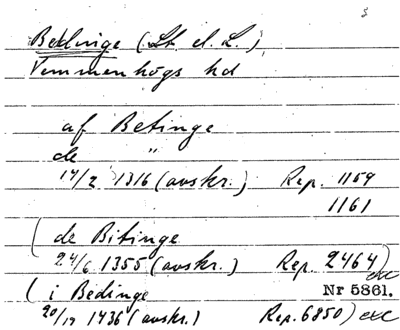 3
Bedinge (St. o. L.),
Vemmenhögs hd
af Betinge
de "
14/2 1316 (avskr.) Rep. 1159
1161
(de Bitinge
24/6 1355 (avskr.) Rep. 2464)
exc
(i Bedinge Nr 5861.
20/12 1436 (avskr.) Rep. 6850) exc